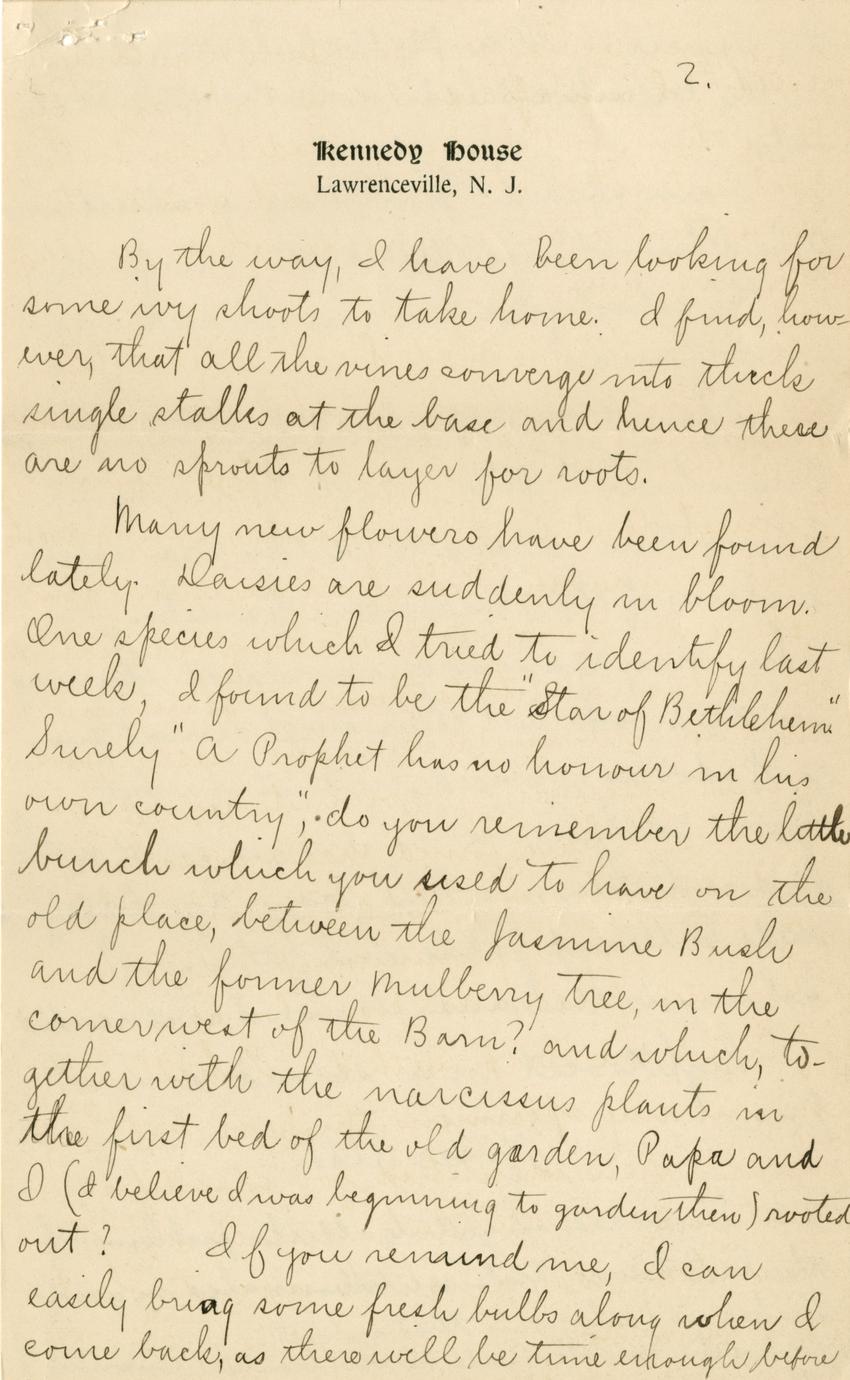 2.
Kennedy House
Lawrenceville, N. J.
By the way, I have been looking for
some ivy shoots to take home. I find, how=
ever, that all the vines converge into thick
single stalks at the base and hence there
are no sprouts to layer for roots.
Many new flowers have been found
lately. Daisies are suddenly in bloom.
One species which I tried to identify last
week, I found to be the "Star of Bethlehem"
Surely "A Prophet has no honour in his
own country", do you remember the little
bunch which you used to have on the
old place, between the Jasmine Bush
and the former Mulberry tree, in the
corner west of the Barn? and which, to-
gether with the narcissus plants in
the first bed of the old garden, Papa and
I (I believe I was beginning to garden then) rooted
out? If you remind me, I can
easily bring some fresh bulbs along when I
come back, as there will be time enough before